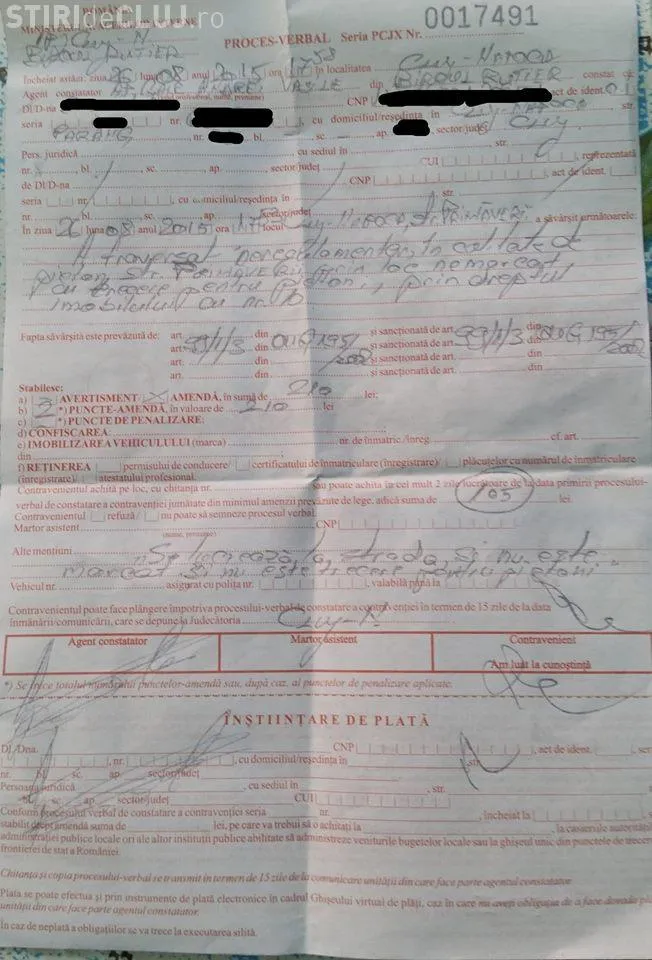 STIRIdeCLUJ.ro
ROMÂNIA
0017491
PROCES-VERBAL Seria PCJX Nr.
Încheiat astăzi: ziua 26 luna 08 anul 2015 ora 17 58 în localitatea Cluj-Napoca
Agent constatator din BIROUL RUTIER constat că
(grad profesional, nume, prenume)
Dl/D-na CNP act de ident. C I
seria nr. , cu domiciliul/reşedinţa în Cluj-Napoca str.
PARÂNG nr. bl. , sc. ap. , sector/judeţ Cluj
Pers. juridică , cu sediul în , str.
nr. bl. , sc. , ap. sector/judeţ CUI , reprezentată
de Dl/D-na CNP , act de ident.
seria nr. , cu domiciliul/reşedinţa în , str.
nr. bl. , sc. , ap. sector/judeţ
În ziua 26 luna 08 anul 2015 ora locul Cluj-Napoca, str. PRIMĂVERII a săvârşit următoarele:
A traversat neregulamentar, în calitate de
pieton str. PRIMĂVERII prin loc nemarcat
cu trecere pentru pietoni, prin dreptul
imobilului cu nr.
Fapta săvârşită este prevăzută de: art. 99/1/3 din OUG 195/2002 şi sancţionată de art. 99/1/3 din OUG 195/2002
art. din şi sancţionată de art. din
art. din şi sancţionată de art. din
art. din şi sancţionată de art. din
Stabilesc:
a) AVERTISMENT/ X AMENDĂ, în sumă de 210 lei;
b) 3 *) PUNCTE-AMENDĂ, în valoare de 210 lei
c) *) PUNCTE DE PENALIZARE:
d) CONFISCAREA:
e) IMOBILIZAREA VEHICULULUI (marca) nr. de înmatric./înreg. cf. art.
din
f) REŢINEREA permisului de conducere/ certificatului de înmatriculare (înregistrare)/ plăcuţelor cu numărul de înmatriculare
(înregistrare)/ atestatului profesional.
Contravenientul achită pe loc, cu chitanţa nr. sau poate achita în cel mult 2 zile lucrătoare de la data primirii procesului-
verbal de constatare a contravenţiei jumătate din minimul amenzii prevăzute de lege, adică suma de 105 lei.
Contravenientul refuză/ nu poate să semneze procesul verbal.
Martor asistent CNP
(nume, prenume)
Alte menţiuni Se lucrează la strada şi nu este
marcat şi nu este trecere pentru pietoni"
Vehicul nr. asigurat cu poliţa nr. , valabilă până la
Contravenientul poate face plângere împotriva procesului-verbal de constatare a contravenţiei în termen de 15 zile de la data
înmânării/comunicării, care se depune la Judecătoria Cluj-N.
Agent constatator Martor asistent Contravenient
Am luat la cunoştinţă
*) Se trece totalul numărului punctelor-amendă sau, după caz, al punctelor de penalizare aplicate.
ÎNŞTIINŢARE DE PLATĂ
Dl./Dna. CNP , act de ident. , seria
, nr. , cu domiciliul/reşedinţa în , str.
nr. bl. sc. ap. sector/judeţ
Persoana juridică , cu sediul în , str.
bl. sc. ap. , sector/judeţ CUI
Conform procesului verbal de constatare a contravenţiei seria nr. , încheiat la
stabilit drept amendă suma de lei, pe care va trebui să o achitaţi la , la casieriile autorităţilor
administraţiei publice locale ori ale altor instituţii publice abilitate să administreze veniturile bugetelor locale sau la ghişeul unic din punctele de trecere
frontierei de stat a României.
Chitanţa şi copia procesului-verbal se transmit în termen de 15 zile de la comunicare unităţii din care face parte agentul constatator.
Plata se poate efectua şi prin instrumente de plată electronice în cadrul Ghişeului virtual de plăţi, caz în care nu aveţi obligaţia de a face dovada
unităţii din care face parte agentul constatator.
În caz de neplată a obligaţiilor se va trece la executarea silită.